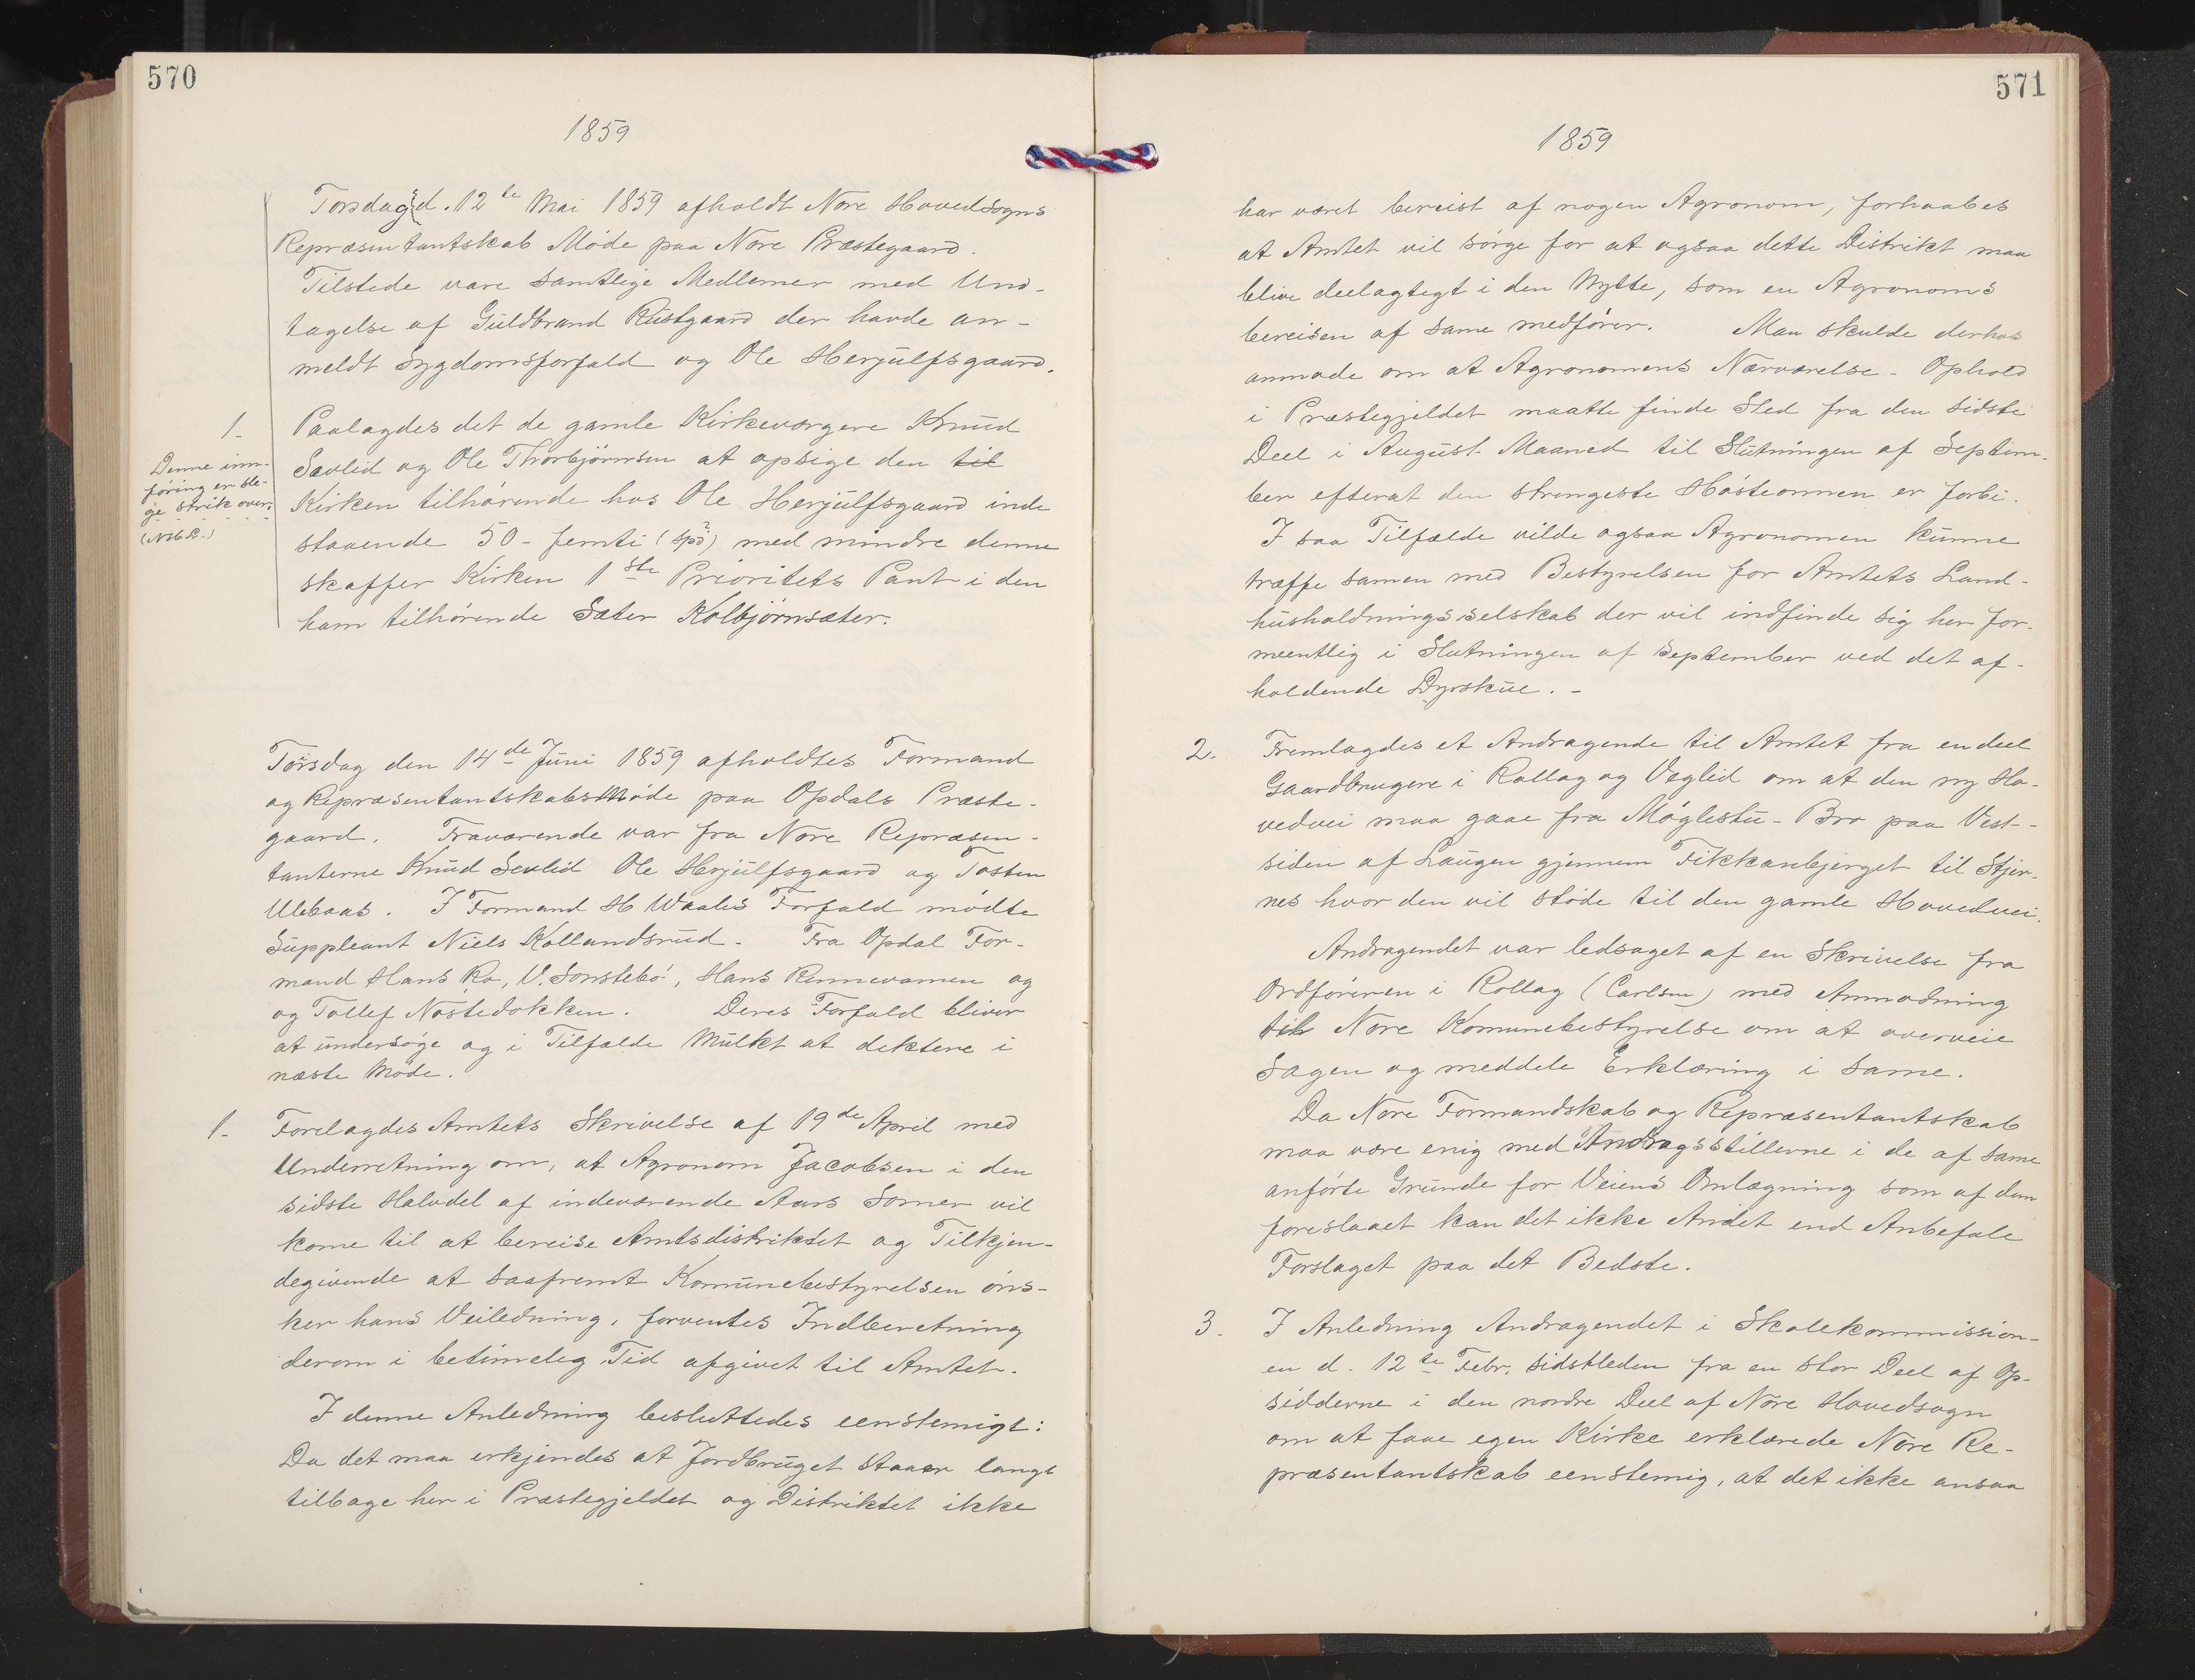 570
1859
Torsdag d. 12te Mai 1859 afholdt Nore Hovedsogns
Repræsentantskab Møde paa Nore Præstegaard.
Tilstede vare samtlige Medlemer med Und-
tagelse af Guldbrand Rustgaard der havde an-
meldt Sygdomsforfald og Ole Herjulfsgaard.
1.
Paalagdes det de gamle Kirkeværgere Knud
Sævlid og Ole Thorbjørnsen at opsige den til
Denne inn-
føring er ble-
ge strik over.
Kirken tilhørende hos Ole Herjulfsgaard inde
staaende 50 - femti (spd?) med mindre denne
skaffer Kirken 1ste Prioritets Pant i den
ham tilhørende Sæter Kolbjørnsæter.
Torsdag den 14de Juni 1859 afholdtes Formand
og RepræsentantskabsMøde paa Opdals Præste-
gaard. Fraværende var fra Nore Repræsen-
tanterne Knud Sevlid Ole Herjulfsgaard og Tosten
Ulebaas. I Formand H Waales Forfald mødte
Suppleant Niels Kollandsrud. Fra Opdal For-
mand Hans Ro, V. Sønstebø, Hans Rennevamen og
og Tollef Nøstedokken. Deres Forfald bliver
at undersøge og i Tilfælde Mulkt at diktere i
næste Møde.
1.
Forelagdes Amtets Skrivelse af 19de April med
Underretning om, at Agronom Jacobsen i den
sidste Halvdel af indeværende Aars Somer vil
kome til at bereise Amtsdistriktet og Tilkjen-
degivende at saafremt Komunebestyrelsen øns-
ker hans Veiledning, forventes Indberetning
derom i betimelig Tid afgivet til Amtet.
I denne Anledning besluttedes eenstemigt:
Da det maa erkjendes at Jordbruget staaer langt
tilbage her i Præstegjeldet og Distriktet ikke
571
1859
har været bereist af nogen Agronom, forhaabes
at Amtet vil sørge for at ogsaa dette Distrikt maa
blive deelagtigt i den Nytte, som en Agronoms
bereisen af same medfører. Man skulde derhos
anmode om at Agronomens Nærværelse - Ophold
i Præstegjeldet maatte finde Sted fra den sidste
Deel i August Maaned til Slutningen af Septem-
ber efterat den strengeste Høsteonnen er forbi.
I saa Tilfælde vilde ogsaa Agronomen kunne
træffe samen med Bestyrelsen for Amtets Land-
husholdningsselskab der vil indfinde sig her for-
meentlig i Slutningen af September ved det af-
holdende Dyrskue. -
2.
Fremlagdes et Andragende til Amtet fra en deel
Gaardbrugere i Rollag og Veglid om at den ny Ho-
vedvei maa gaae fra Møglestu-Bro paa Vest-
siden af Laugen gjennem Fikkanbjerget til Stjer-
nes hvor den vil støde til den gamle Hovedvei.
Andragendet var ledsaget af en Skrivelse fra
Ordføreren i Rollag (Carlsen) med Anmodning
til Nore Komunebestyrelse om at overveie
Sagen og meddele Erklæring i same.
Da Nore Formandskab og Repræsentantskab
maa være enig med Andragsstillerne i de af same
anførte Grunde for Veiens Omlægning som af dem
foreslaaet kan det ikke Andet end Anbefale
Forslaget paa det Bedste.
3.
I Anledning Andragendet i Skolekommission-
en d. 12te Febr. sidstleden fra en stor Deel af Op-
sidderne i den nordre Deel af Nore Hovedsogn
om at faae egen Kirke erklærede Nore Re-
præsentantskab eenstemig, at det ikke ansaa